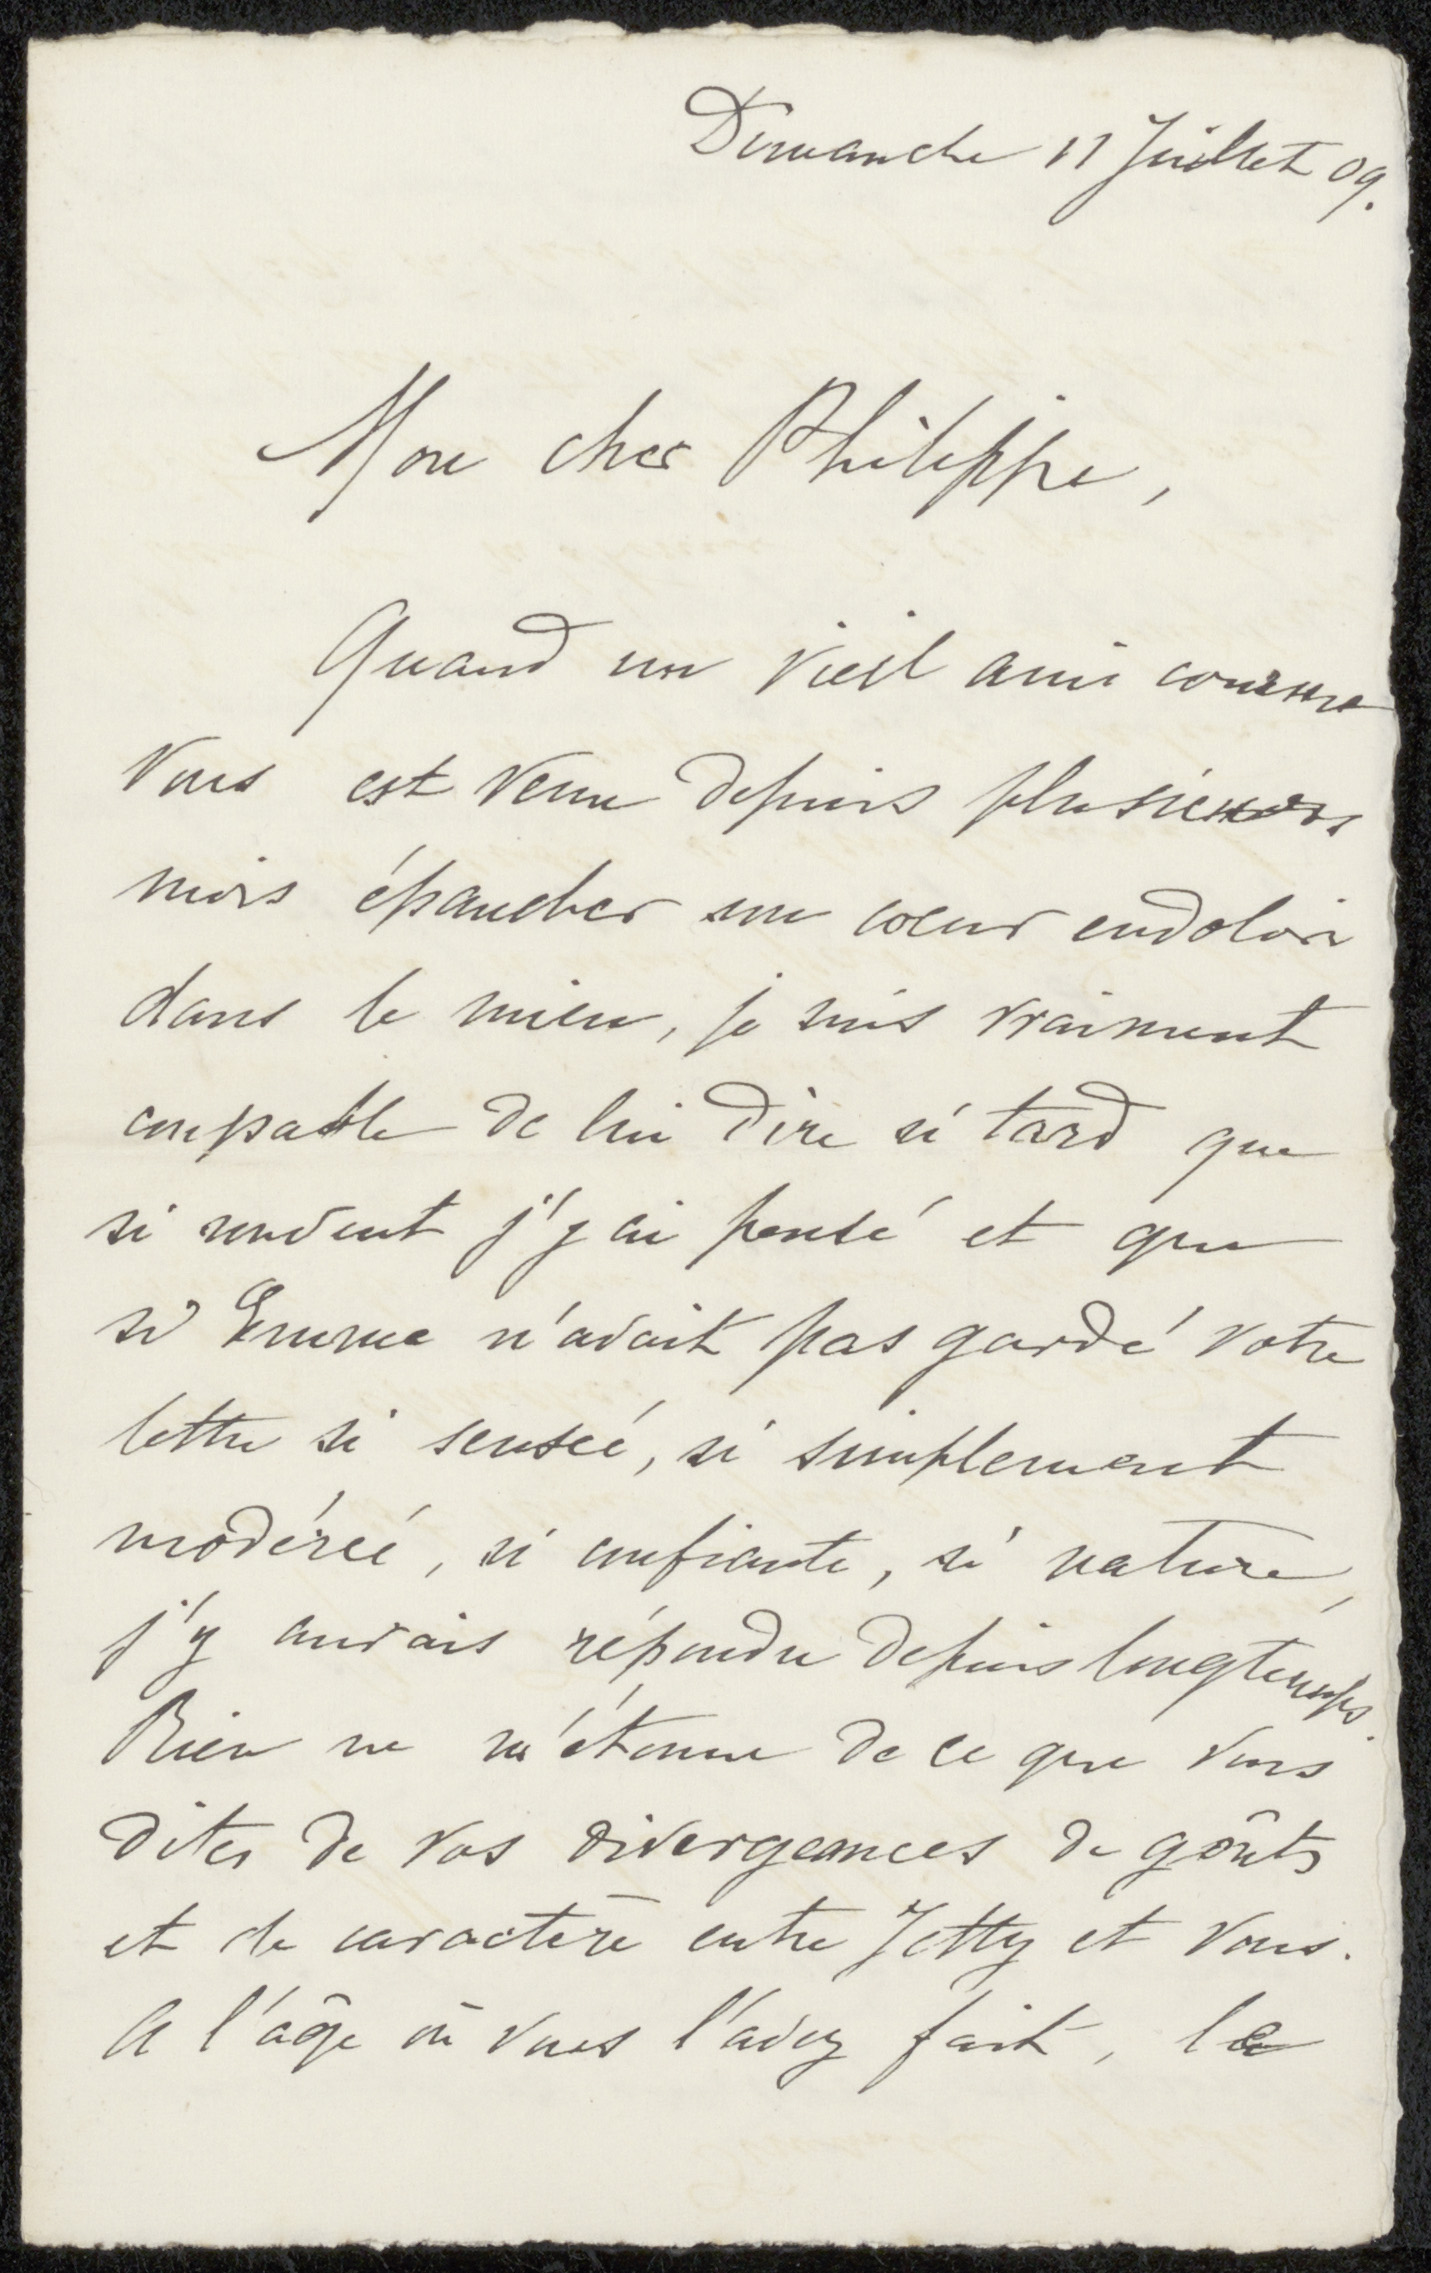 Dimanche 11 Juillet 09.
Mon cher Philippe,
Quand un vieil ami comme
vous est venu depuis plusieurs
mois épancher un cœur endolori
dans le mien, je suis vraiment
coupable de lui dire si tard que
si souvent j'y ai pensé et que
si Emma n'avait pas gardé votre
lettre si senseé, si simplement
modéreé, si confiante, si nature,
j'y aurais répondu depuis longtemps.
Rien ne m'étonne de ce que vous
dites de vos divergeances de goûts
et de caractère entre Jetty et vous.
A l'âge où vous l'avez fait, le